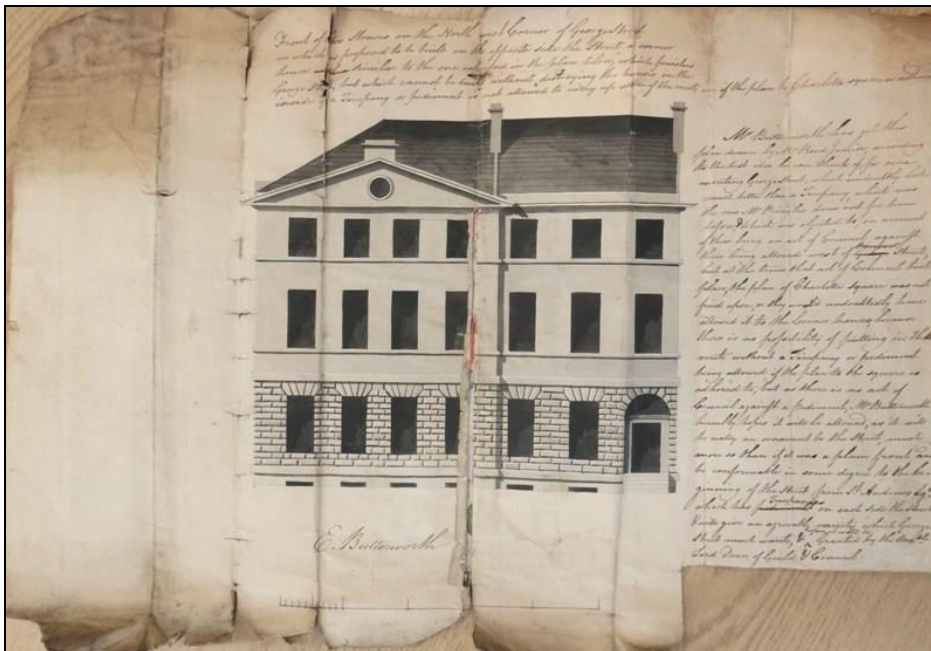 Front of two Houses on the North west Corner of George Street
on which is proposed to be built on the opposite side the Street a corner
house similar to the one in the plan below, which finishes
George Street, but which cannot be built without destroying the in the
inside, if a Timpany or pediment is not allowed to carry up some of the vents in, if the plan to Charlotte square is
Mr Butterworth has got this
plan drawn by Mr according
to the best idea he can think of for orna-
menting George Street, which undoubtedly looks
much better than a Timpany, which was
the one Mr
before & which was objected to on account
of there being an act of Council against
there being allowed west of Hanover Street,
but as the time that act of Council took
place, the plan of Charlotte square was not
fixed upon, or they would undoubtedly have
allowed it to the Corner houses, because
there is no possibility of putting in the
vents without a Timpany or pediment
being allowed if the plan to the square is
adhered to, but as there is no act of
Council against a pediment, Mr Butterworth
humbly hopes it will be allowed, as it will
be really an ornament to the Street, much
more so than if it was a plain front and
be conformable in some degree to the be-
ginning of the Street from St Andrews Sqr
which has Timpanys on each side the Street
& will give an agreeable variety which George
Street must want, if granted by the
Lord Dean of Guild & Council
E. Butterworth